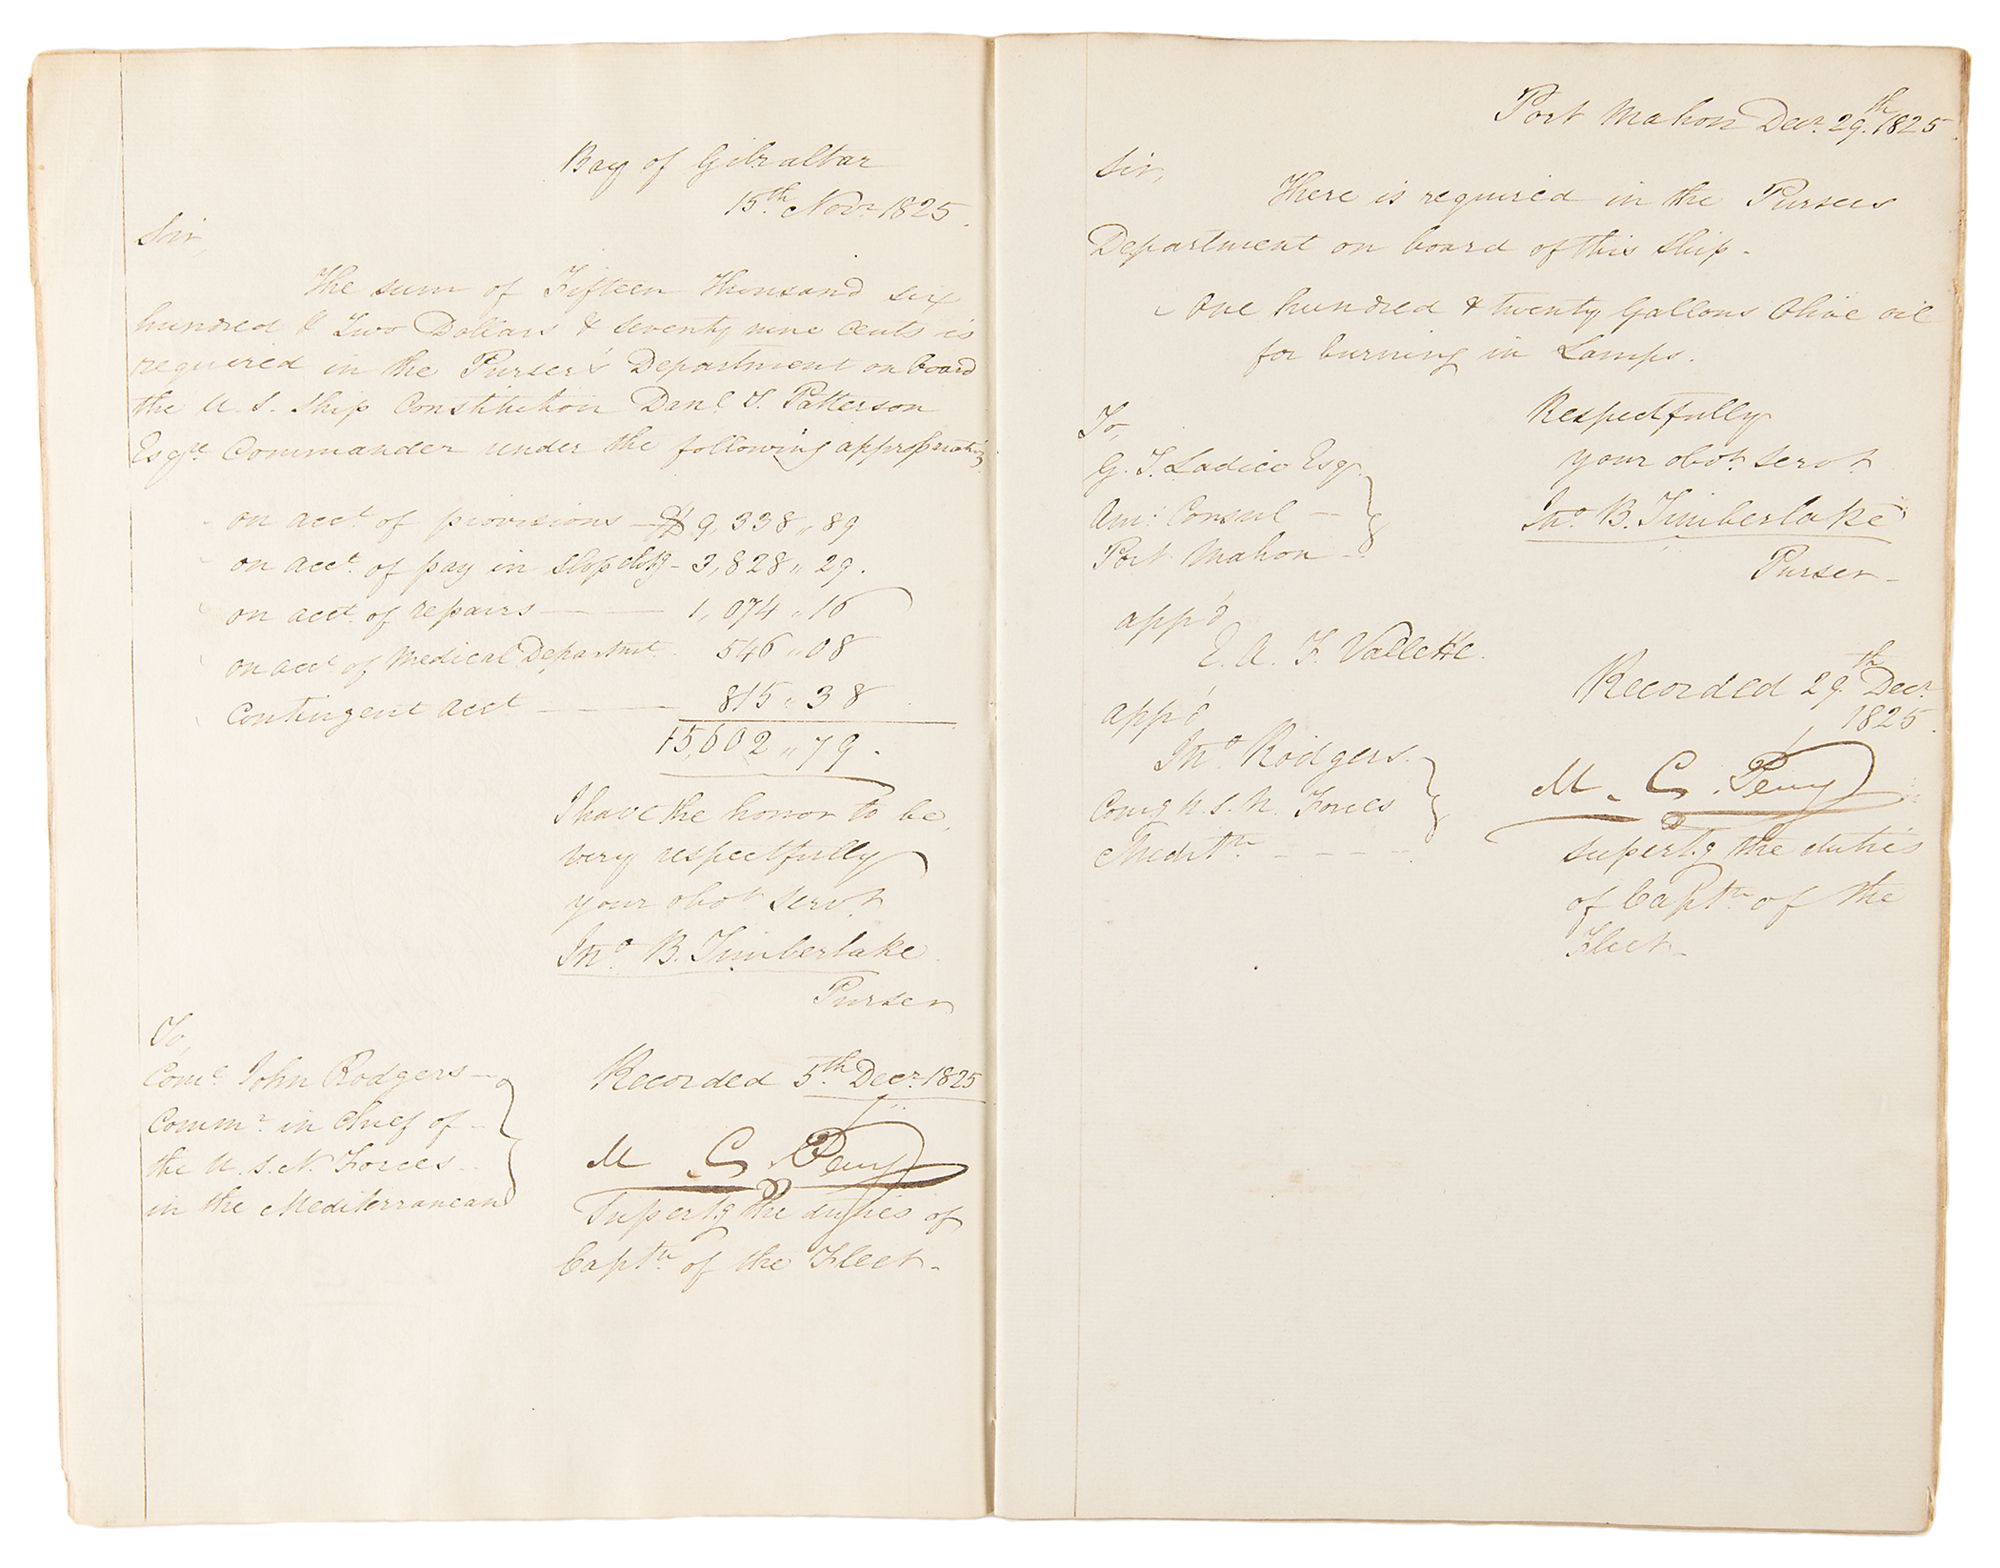 Bay of Gibraltar
15th Novr 1825.
Sir,
The sum of Fifteen Thousand six
hundred & Two Dollars & seventy nine Cents is
required in the Purser's Department on board
the U. S. Ship Constitution Danl T. Patterson
Esqre Commander under the following
on acct of provisions — $ 9,338 " 89
on acct. of pay in — 3,828 " 29.
on acct of repairs — 1,074 " 16
on acct of Medical Departmt. 546 " 08
Contingent acct — 815 " 38
15,602 " 79.
I have the honor to be,
very respectfully
your obot servt
Jno. B. Timberlake
Purser
To,
Comr. John Rodgers —
Commr. in chief of —
the U. S. N. Forces —
in the Mediterranean
Recorded 5th. Decr. 1825
M. C. Perry
Superg the duties of
Captn of the Fleet.
Port Mahon Decr. 29th. 1825.
Sir,
There is required in the Pursers
Department on board of this Ship.
One hundred & twenty Gallons Olive oil
for burning in Lamps.
Respectfully
your obot. servt.
Jno. B. Timberlake
Purser —
To,
G. T. Ladico Esqr.
Am. Consul —
Port Mahon —
app'd
E. A. F. Vallette.
app'd
Jno. Rodgers.
Comg U. S. N. Forces
Meditn
Recorded 29th Decr.
1825.
M. C. Perry
Superg the duties
of Captn of the
Fleet —